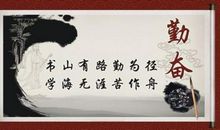 勤奋
书山有路勤为径
学海无涯苦作舟